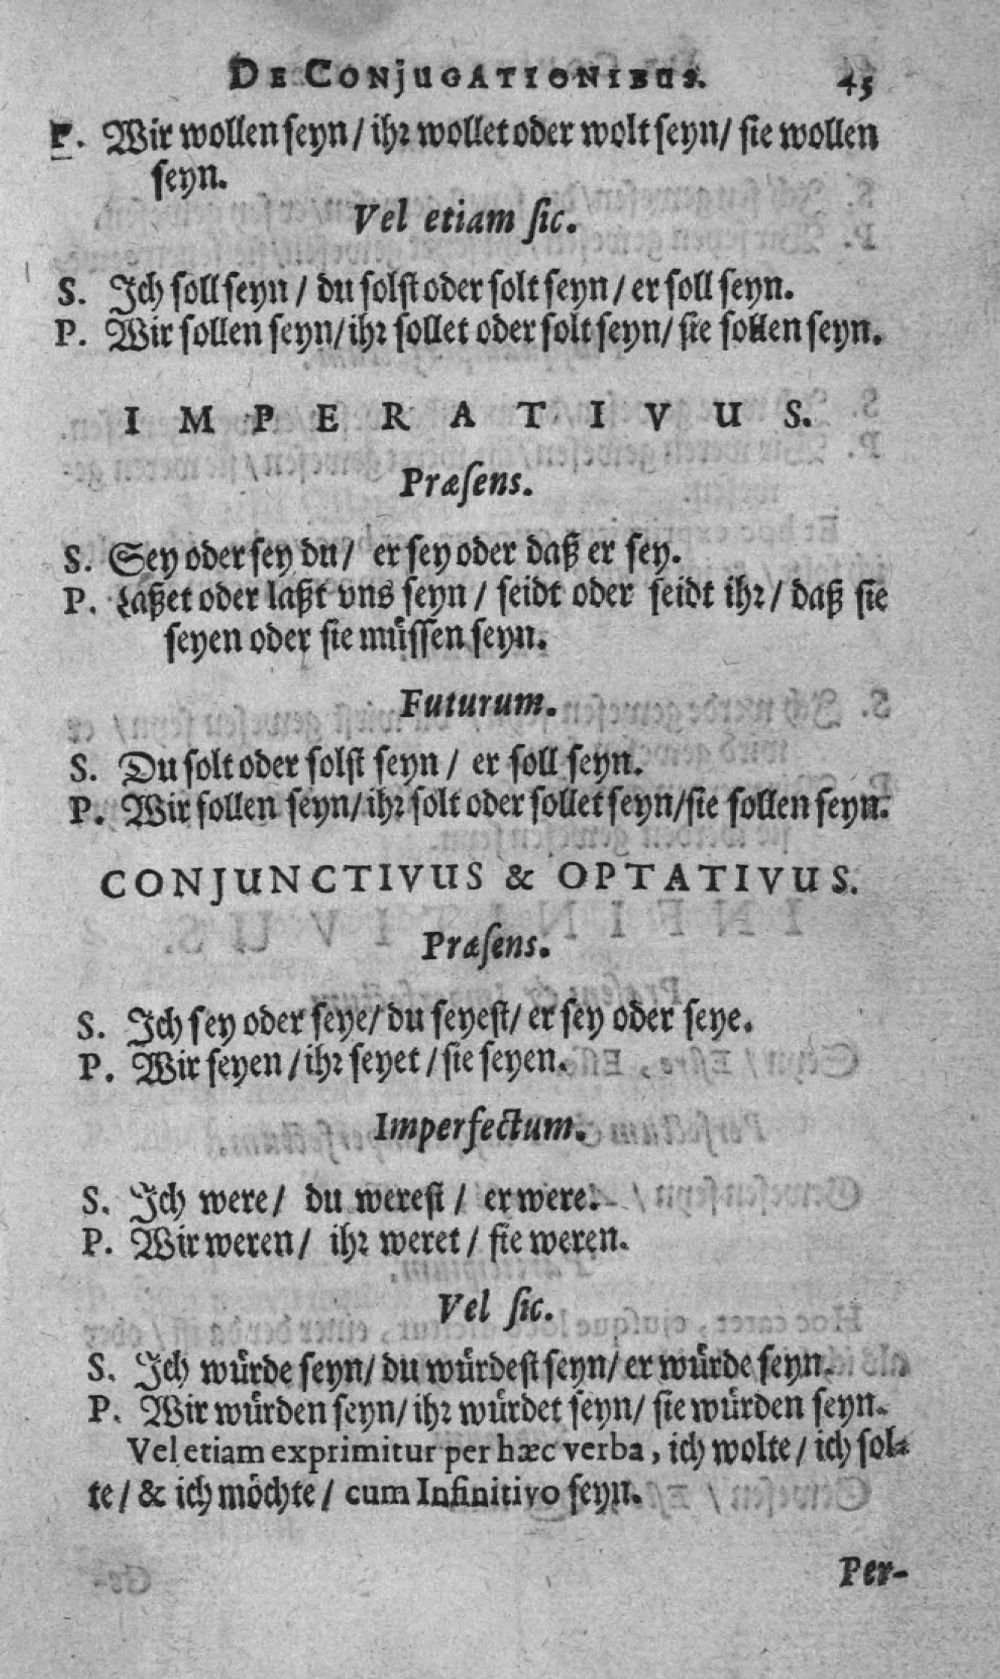 DE CONJUGATIONIBUS. 45
P. Wir wollen seyn / ihr wollet oder wolt seyn / sie wollen
seyn.
Vel etiam ſic.
S. Ich soll seyn / du solst oder solt seyn / er soll seyn.
P. Wir sollen seyn / ihr sollet oder solt seyn / sie sollen seyn.
IMPERATIVUS.
Præſens.
S. Sey oder sey du / er sey oder daß er sey.
P. Laßet oder laßt vns seyn / seidt oder seidt ihr / daß sie
seyen oder sie müssen seyn.
Futurum.
S. Du solt oder solst seyn / er soll seyn.
P. Wir sollen seyn / ihr solt oder sollet seyn / sie sollen seyn.
CONJUNCTIVUS & OPTATIVUS.
Præſens.
S. Ich sey oder seye / du seyest / er sey oder seye.
P. Wir seyen / ihr seyet / sie seyen.
Imperfectum.
S. Ich were / du werest / er were.
P. Wir weren / ihr weret / sie weren.
Vel ſic.
S. Ich würde seyn / du würdest seyn / er würde seyn.
P. Wir würden seyn / ihr würdet seyn / sie würden seyn.
Vel etiam exprimitur per hæc verba, ich wolte / ich sol-
te / & ich möchte / cum Infinitivo seyn.
Per-